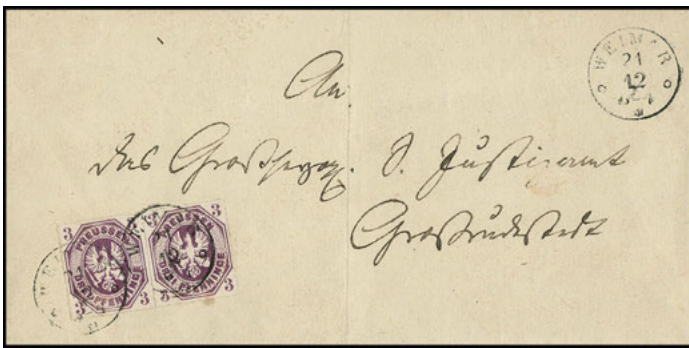 WEIMAR
21
12
An
das Großherzogl. S. Justizamt
Großrudestedt
3 3
PREUSSEN
DREI PFENNINGE
3 3
PREUSSEN
DREI PFENNINGE
3